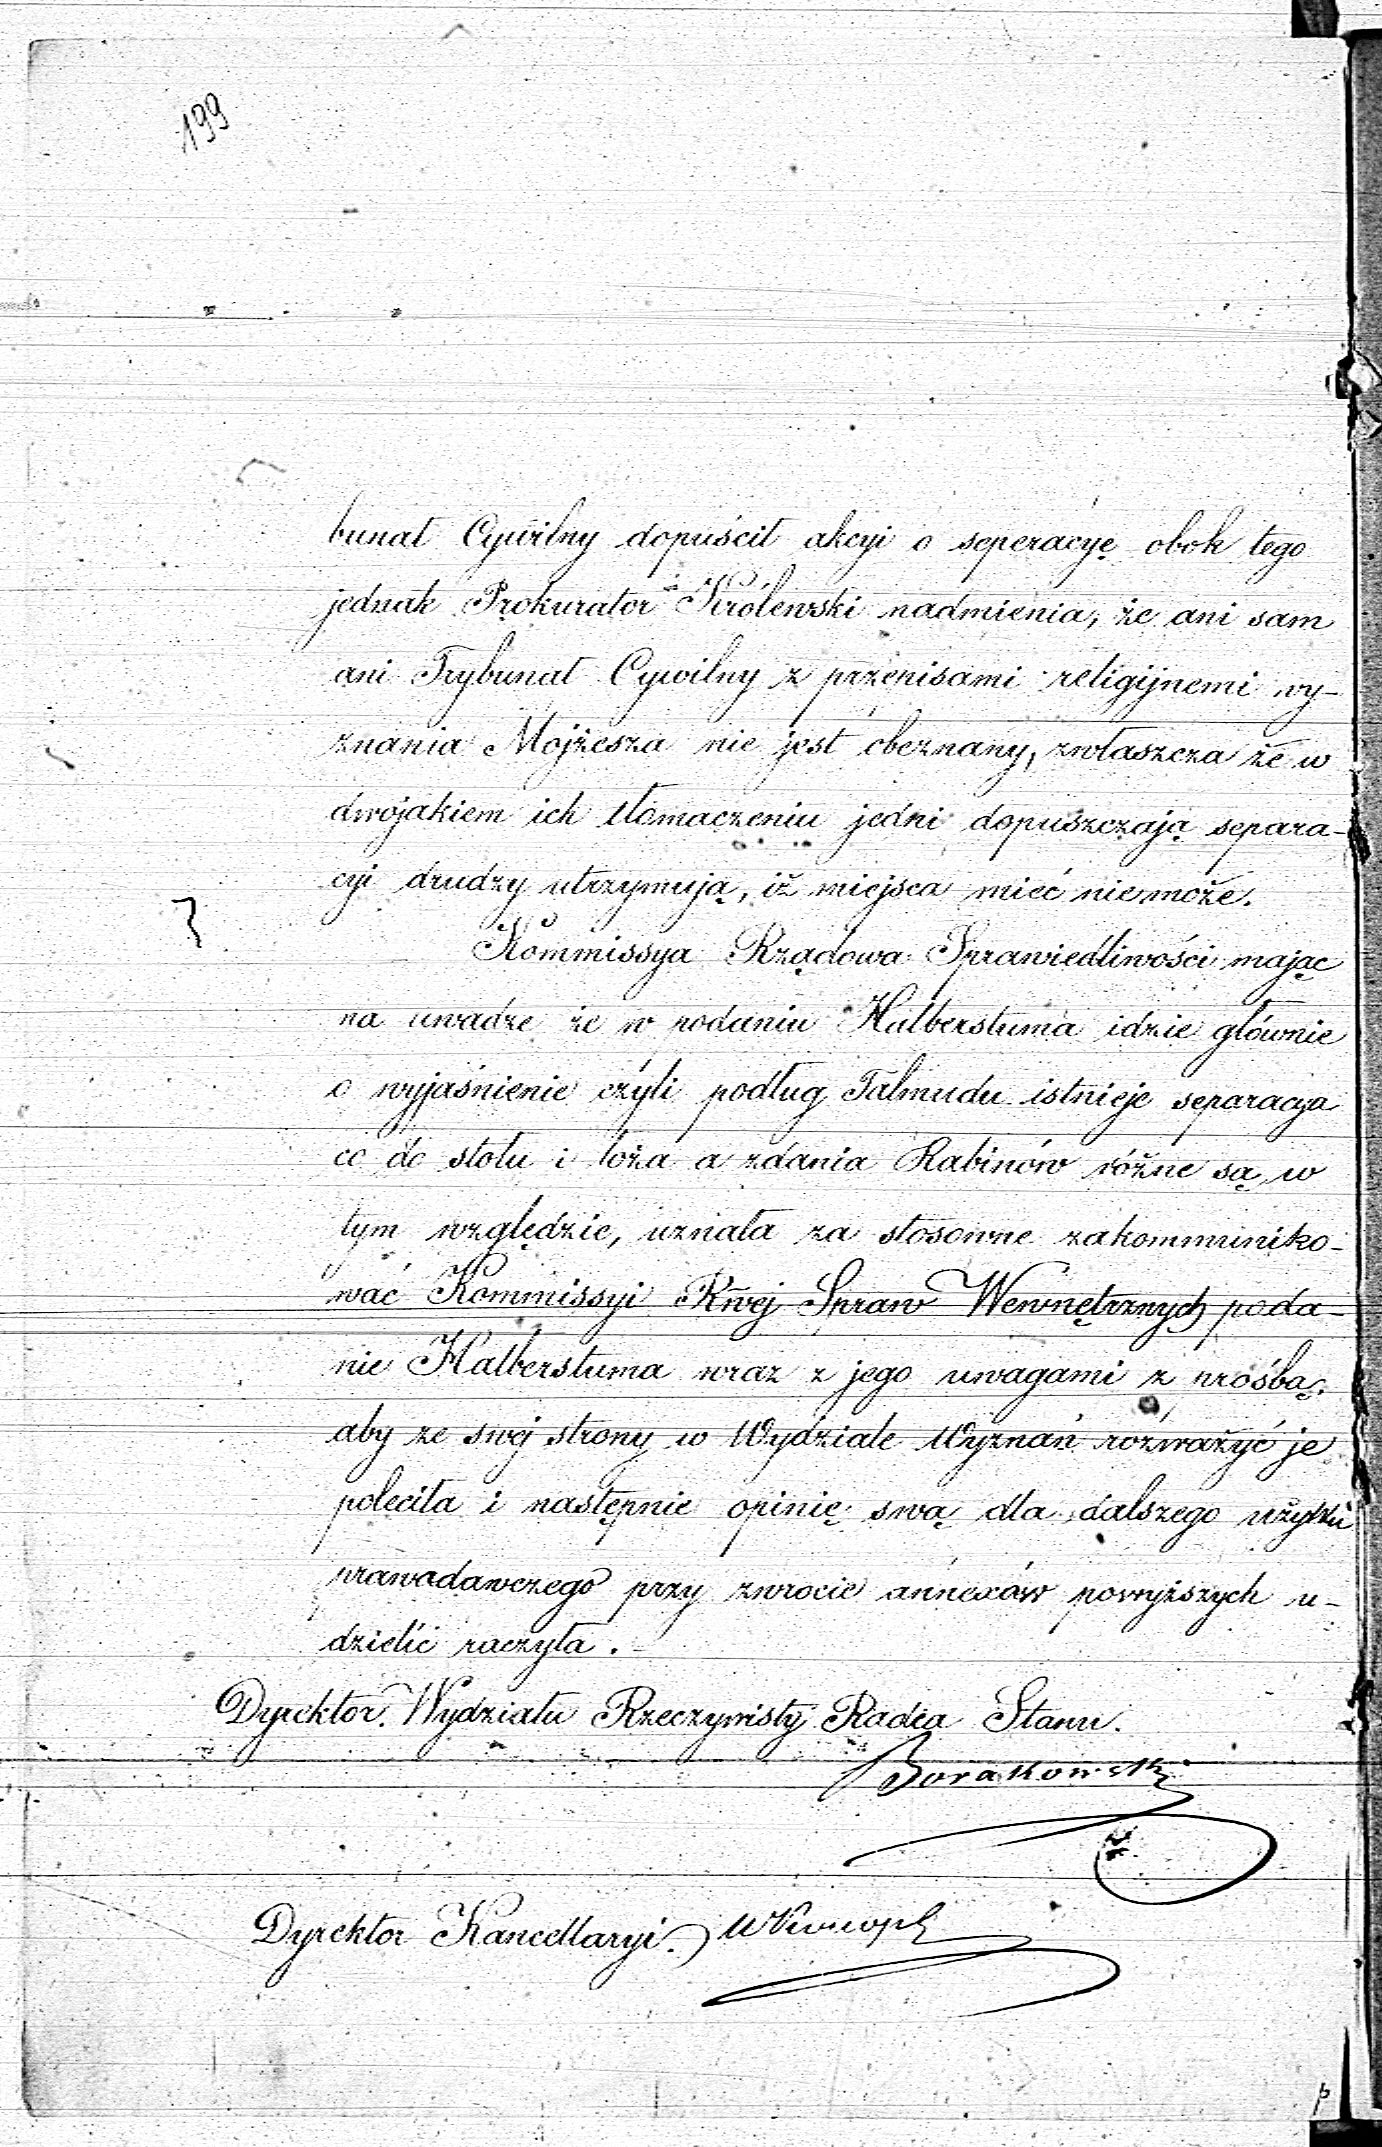 199
bunał Cywilny dopuścił akcyi o seperacyę obok tego
jednak Prokurator Królewski nadmienia, że ani sam
ani Trybunał Cywilny z przepisami religijnemi wy-
znania Mojżesza nie jest obeznany, zwłaszcza że w
dwojakiem ich tłomaczeniu jedni dopuszczają separa-
cyi drudzy utrzymują, iż miejsca mieć niemoże.
Kommissya Rządowa Sprawiedliwości mając
na uwadze że w podaniu Halberstuma idzie głównie
o wyjaśnienie czyli podług Talmudu istnieje separacya
co do stołu i łoża a zdania Rabinów różne są w
tym względzie, uznała za stosowne zakommuniko-
wać Kommissyi Rwej Spraw Wewnętrznych poda-
nie Halberstuma wraz z jego uwagami z prośbą,
aby ze swej strony w Wydziale Wyznań rozważyć je
poleciła i następnie opinię swą dla dalszego użytku
prawadawczego przy zwrocie annexów powyższych u-
dzielić raczyła.
Dyrektor Wydziału Rzeczywisty Radca Stanu.
Dyrektor Kancellaryi.